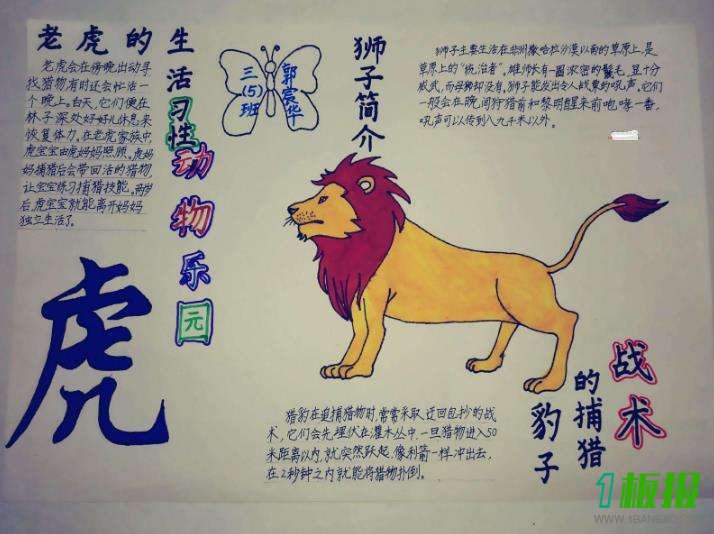 老虎的生活习性
老虎会在傍晚出动寻
找猎物有时还会忙活一
个晚上。白天，它们便在
林子深处好好儿休息来
恢复体力。在老虎家族中，
虎宝宝由虎妈妈照顾。虎妈
妈捕猎后会带回活的猎物，
让宝宝练习捕猎技能。两岁
后，虎宝宝就能离开妈妈
独立生活了。
动物乐园
三(5)班
郭宸华
狮子简介
狮子主要生活在非洲撒哈拉沙漠以南的草原上，是
草原上的“统治者”。雄狮长有一圈浓密的鬣毛，显十分
威武，而母狮却没有，狮子能发出令人战栗的吼声。它们
一般会在晚间狩猎前和黎明醒来前咆哮一番，
吼声可以传到八九千米以外。
虎
猎豹在追捕猎物时，常常采取迂回包抄的战
术，它们会先埋伏在灌木丛中，一旦猎物进入50
米距离以内，就突然跃起，像利箭一样冲出去，
在2秒钟之内就能将猎物扑倒。
豹子
的捕猎
战术
1板报
WWW.1BANBAO.COM